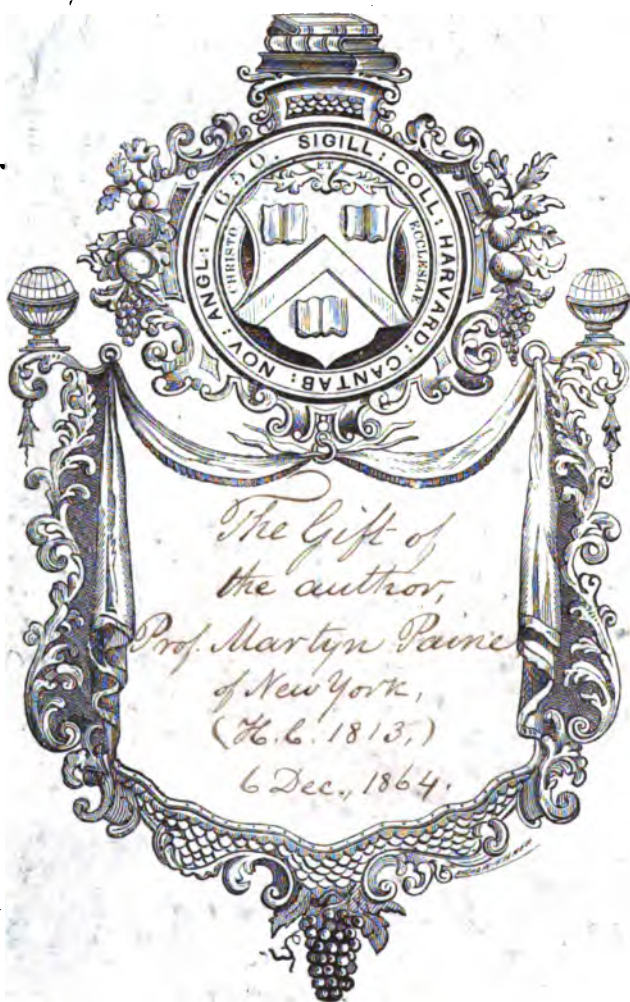 SIGILL: COLL: HARVARD: CANTAB: NOV: ANGL: 1650.
CHRISTO
ET
ECCLESIAE
The Gift of
the author,
Prof. Martyn Paine
of New York,
(H.C. 1813.)
6 Dec., 1864.